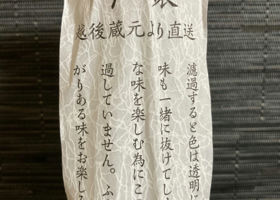 越後蔵元より直送
濾過すると色は透明に
味も一緒に抜けてし
な味を楽しむ為にこ
過していません。ふ
がりある味をお楽し